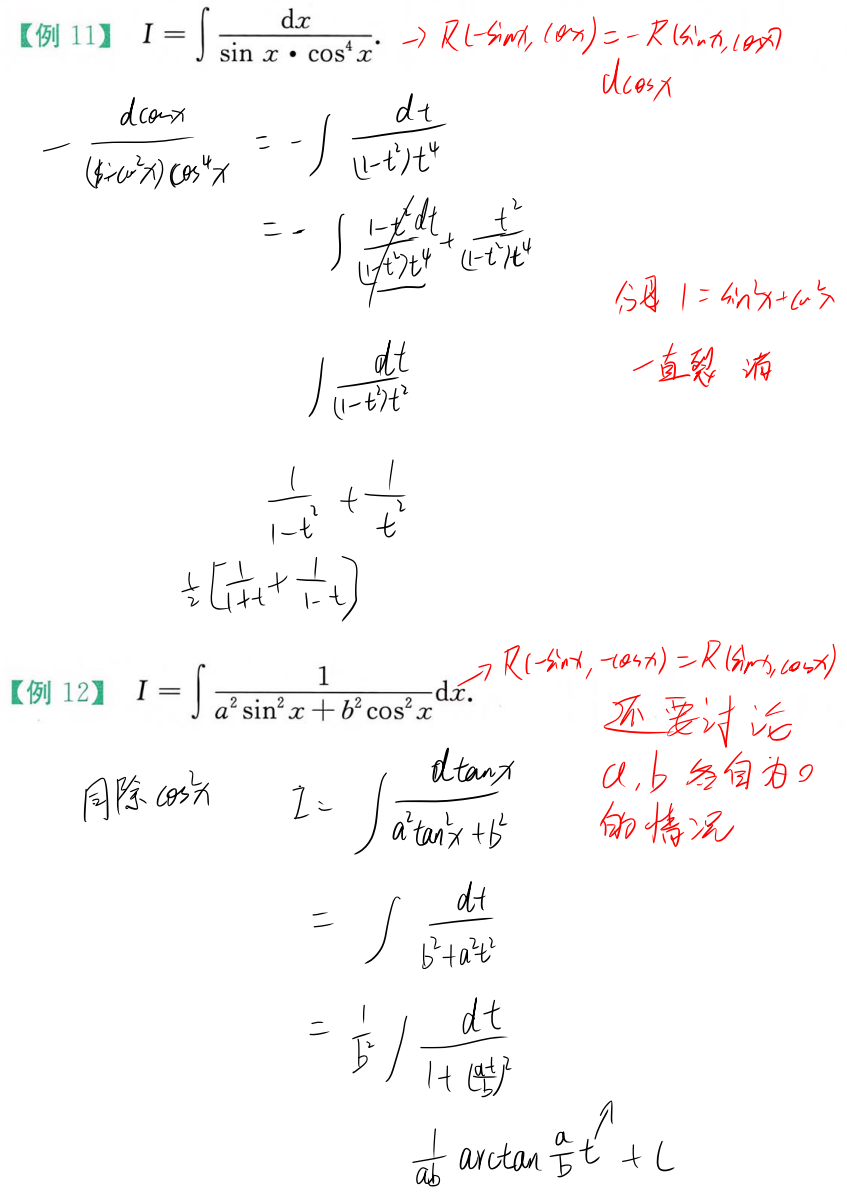 【例 11】 I = ∫ dx / (sin x · cos⁴ x). → R(-sinx, cosx) = -R(sinx, cosx)
dcosx
- dcosx / ((1-cos²x)cos⁴x) = - ∫ dt / ((1-t²)t⁴)
= - ∫ (1-t²)dt / ((1-t²)t⁴) + t² / ((1-t²)t⁴)
分母 1 = sin²x+cos²x
∫ dt / ((1-t²)t²)
一直裂 消
1/(1-t²) + 1/t²
1/2 [1/(1+t) + 1/(1-t)]
【例 12】 I = ∫ 1 / (a² sin² x + b² cos² x) dx. → R(-sinx, -cosx) = R(sinx, cosx)
还要讨论
同除 cos²x I = ∫ dtanx / (a²tan²x + b²)
a, b 各自为0
的情况
= ∫ dt / (b²+a²t²)
= 1/b² ∫ dt / (1 + (at/b)²)
1/ab arctan a/b t + C